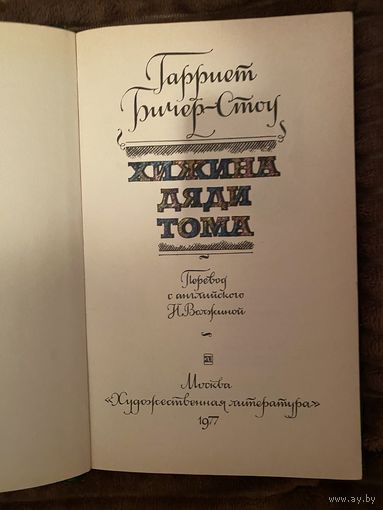 Гарриет
Бичер-Стоу
ХИЖИНА
ДЯДИ
ТОМА
Перевод
с английского
Н. Волжиной
Москва
«Художественная литература»
1977
www.ay.by